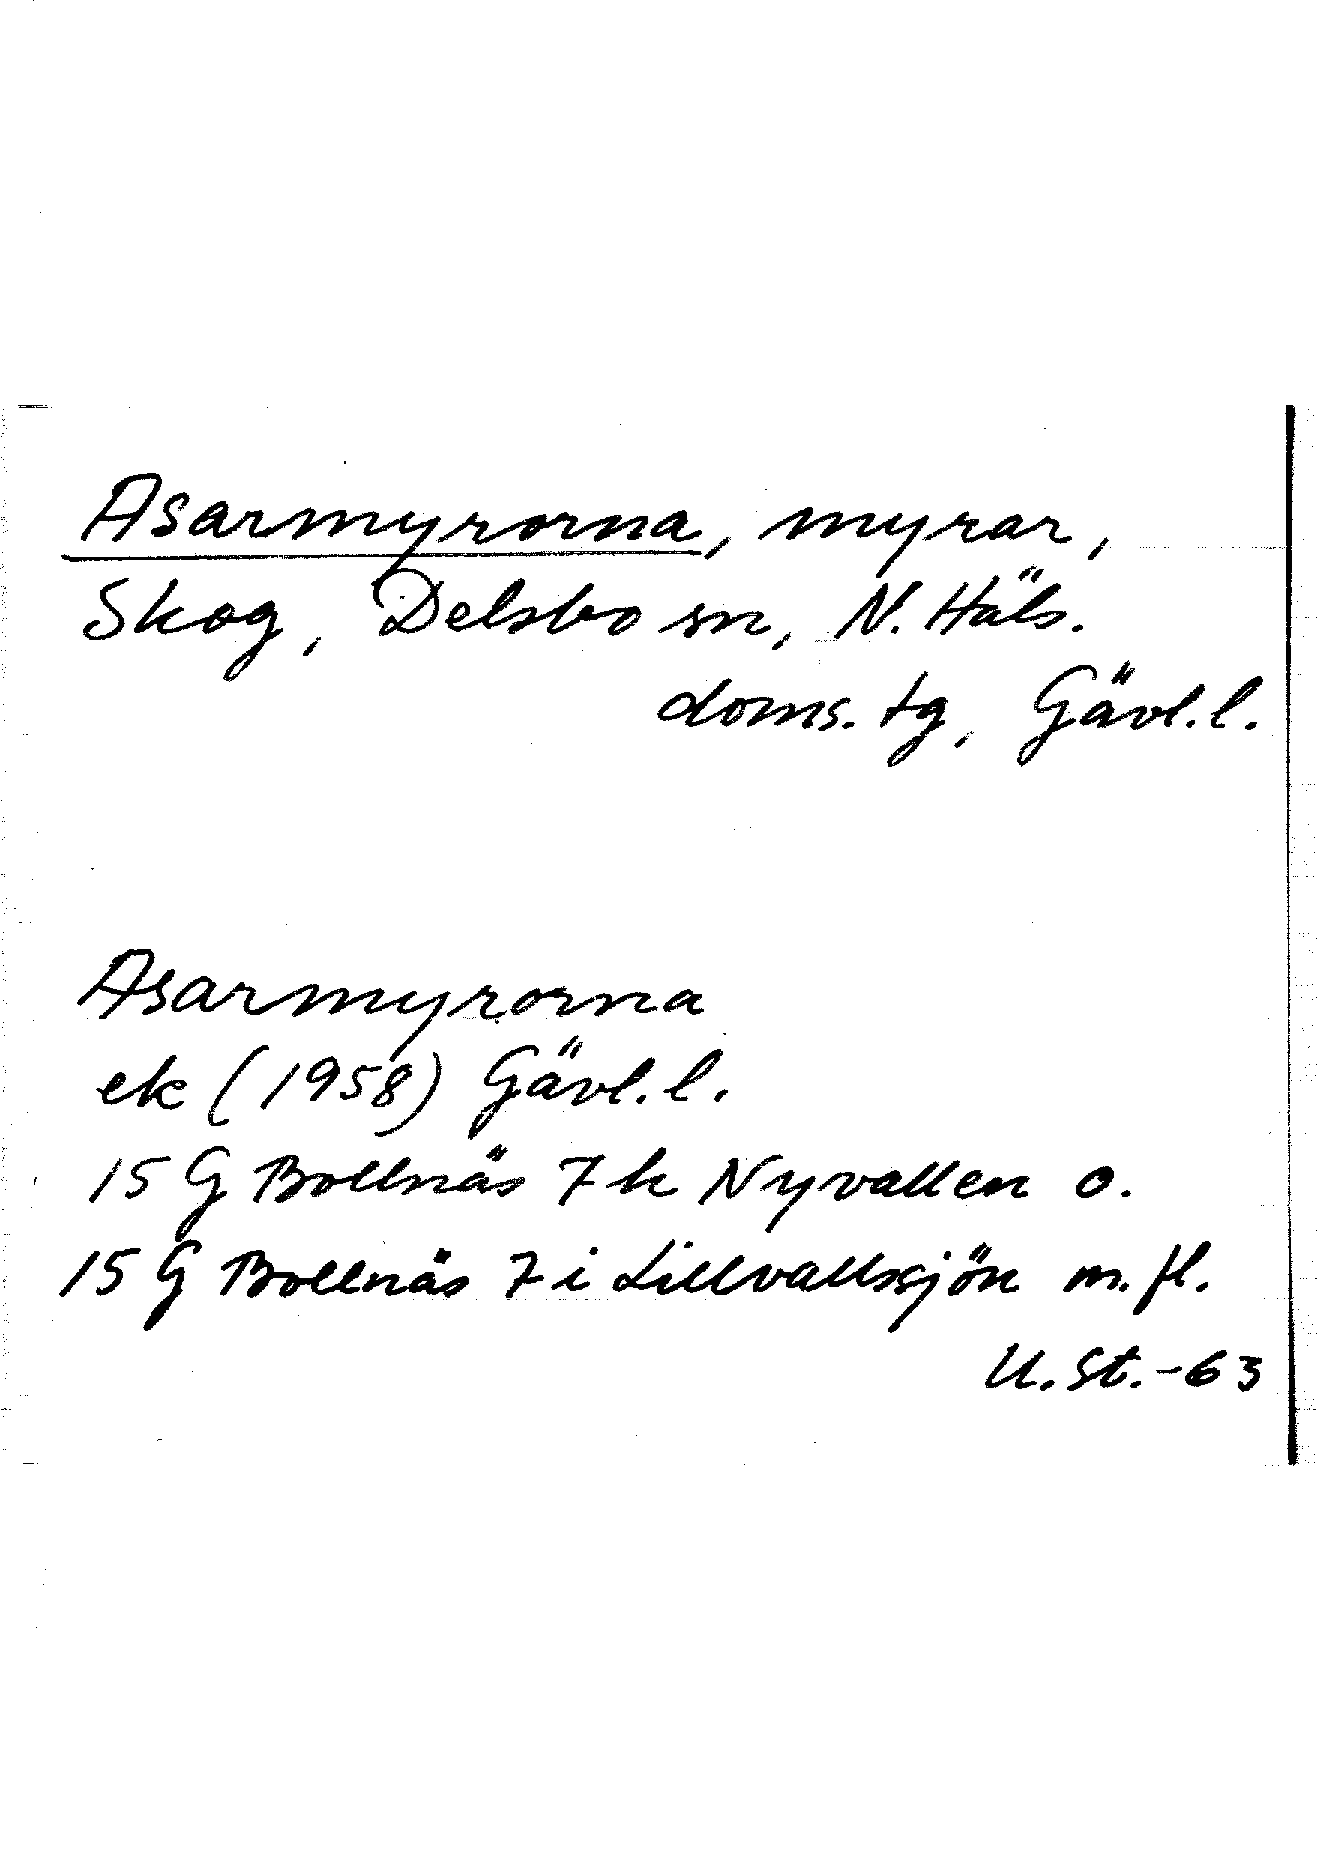 Asarmyrorna, myrar,
Skog, Delsbo sn, N. Häls.
doms. tg, Gävl. l.
Asarmyrorna
ek (1958) Gävl. l.
15 G Bollnäs 7 h Nyvallen o.
15 G Bollnäs 7 i Lillvallsjön m. fl.
U. St. -63